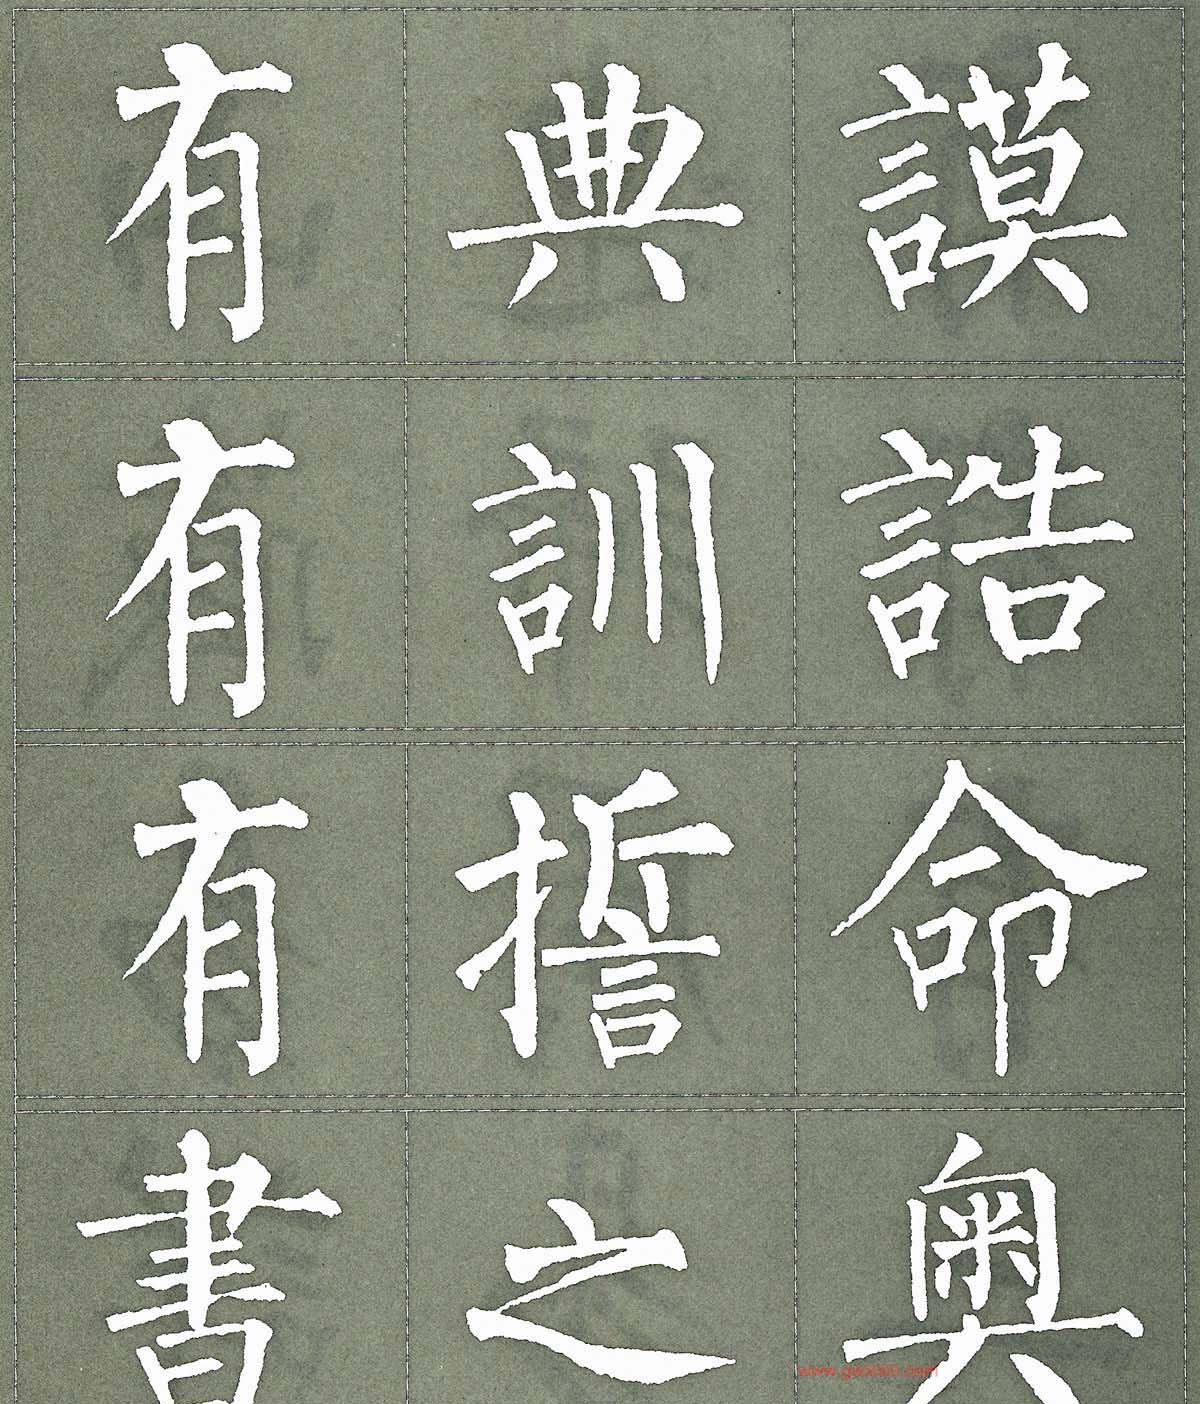 有典謨
有訓誥
有誓命
書之奧